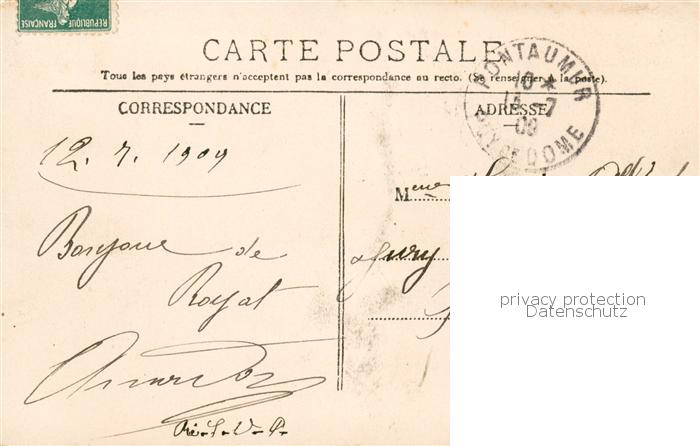 REPUBLIQUE FRANÇAISE
CARTE POSTALE
Tous les pays étrangers n'acceptent pas la correspondance au recto. (Se renseigner à la poste).
CORRESPONDANCE
ADRESSE
PONTAUMUR
10 *
-7
09
PUY DE DOME
12. 7. 1909
Bonjour de
Royat
M
privacy protection
Datenschutz